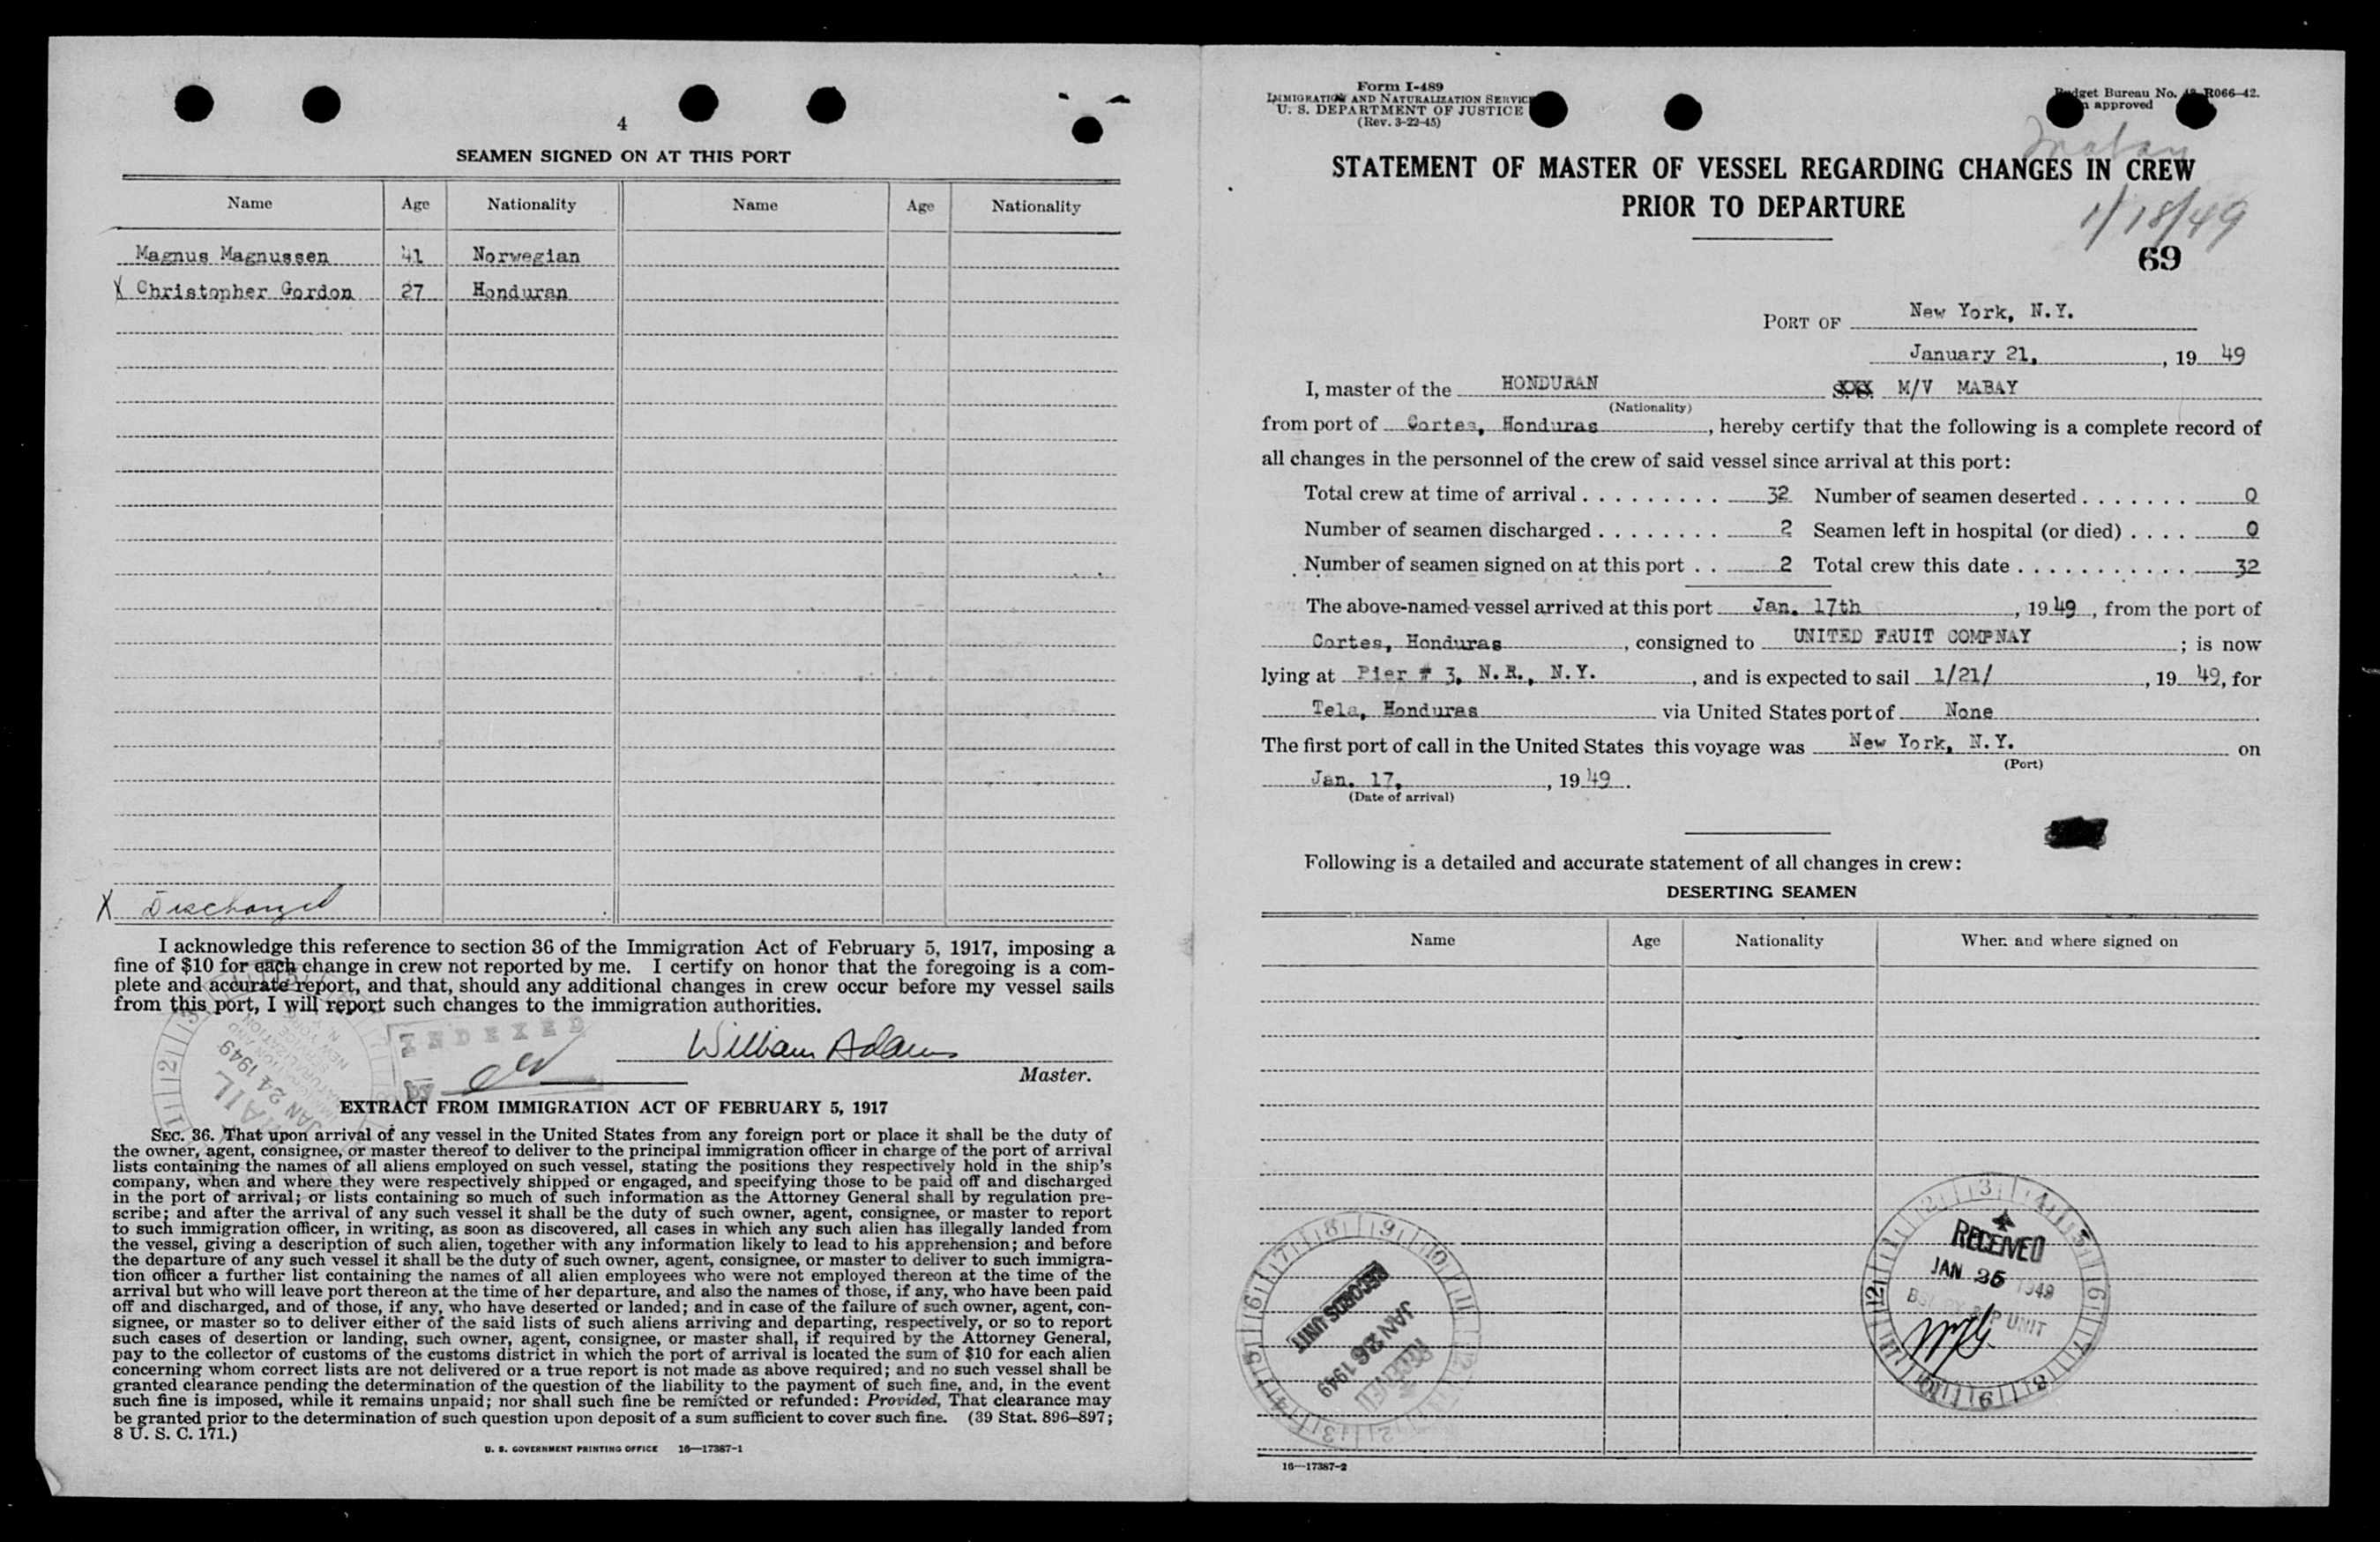 4
SEAMEN SIGNED ON AT THIS PORT
Name Age Nationality Name Age Nationality
Magnus Magnussen 41 Norwegian
X Christopher Gordon 27 Honduran
X Discharged
I acknowledge this reference to section 36 of the Immigration Act of February 5, 1917, imposing a
fine of $10 for each change in crew not reported by me. I certify on honor that the foregoing is a com-
plete and accurate report, and that, should any additional changes in crew occur before my vessel sails
from this port, I will report such changes to the immigration authorities.
INDEXED
BY
William Adams
Master.
MAIL
JAN 24 1949
EXTRACT FROM IMMIGRATION ACT OF FEBRUARY 5, 1917
SEC. 36. That upon arrival of any vessel in the United States from any foreign port or place it shall be the duty of
the owner, agent, consignee, or master thereof to deliver to the principal immigration officer in charge of the port of arrival
lists containing the names of all aliens employed on such vessel, stating the positions they respectively hold in the ship's
company, when and where they were respectively shipped or engaged, and specifying those to be paid off and discharged
in the port of arrival; or lists containing so much of such information as the Attorney General shall by regulation pre-
scribe; and after the arrival of any such vessel it shall be the duty of such owner, agent, consignee, or master to report
to such immigration officer, in writing, as soon as discovered, all cases in which any such alien has illegally landed from
the vessel, giving a description of such alien, together with any information likely to lead to his apprehension; and before
the departure of any such vessel it shall be the duty of such owner, agent, consignee, or master to deliver to such immigra-
tion officer a further list containing the names of all alien employees who were not employed thereon at the time of the
arrival but who will leave port thereon at the time of her departure, and also the names of those, if any, who have been paid
off and discharged, and of those, if any, who have deserted or landed; and in case of the failure of such owner, agent, con-
signee, or master so to deliver either of the said lists of such aliens arriving and departing, respectively, or so to report
such cases of desertion or landing, such owner, agent, consignee, or master shall, if required by the Attorney General,
pay to the collector of customs of the customs district in which the port of arrival is located the sum of $10 for each alien
concerning whom correct lists are not delivered or a true report is not made as above required; and no such vessel shall be
granted clearance pending the determination of the question of the liability to the payment of such fine, and, in the event
such fine is imposed, while it remains unpaid; nor shall such fine be remitted or refunded: Provided, That clearance may
be granted prior to the determination of such question upon deposit of a sum sufficient to cover such fine. (39 Stat. 896–897;
8 U. S. C. 171.)
U. S. GOVERNMENT PRINTING OFFICE 16—17387-1
Form I-489
IMMIGRATION AND NATURALIZATION SERVICE
U. S. DEPARTMENT OF JUSTICE
(Rev. 3-22-45)
Budget Bureau No. R066-42.
approved
Mabay
STATEMENT OF MASTER OF VESSEL REGARDING CHANGES IN CREW
PRIOR TO DEPARTURE
1/18/49
69
PORT OF New York, N.Y.
January 21, , 19 49
I, master of the HONDURAN S. S. M/V MABAY
(Nationality)
from port of Cortes, Honduras , hereby certify that the following is a complete record of
all changes in the personnel of the crew of said vessel since arrival at this port:
Total crew at time of arrival . . . . . . . . . 32 Number of seamen deserted . . . . . . . 0
Number of seamen discharged . . . . . . . . 2 Seamen left in hospital (or died) . . . . 0
Number of seamen signed on at this port . . 2 Total crew this date . . . . . . . . . . . 32
The above-named vessel arrived at this port Jan. 17th , 19 49 , from the port of
Cortes, Honduras , consigned to UNITED FRUIT COMPNAY ; is now
lying at Pier # 3, N.R., N.Y. , and is expected to sail 1/21/ , 19 49, for
Tela, Honduras via United States port of None
The first port of call in the United States this voyage was New York, N.Y. on
(Port)
Jan. 17, , 19 49 .
(Date of arrival)
Following is a detailed and accurate statement of all changes in crew:
DESERTING SEAMEN
Name Age Nationality When and where signed on
RECORDS UNIT
JAN 26 1949
RECEIVED
RECEIVED
JAN 25 1949
UNIT
16—17387-2